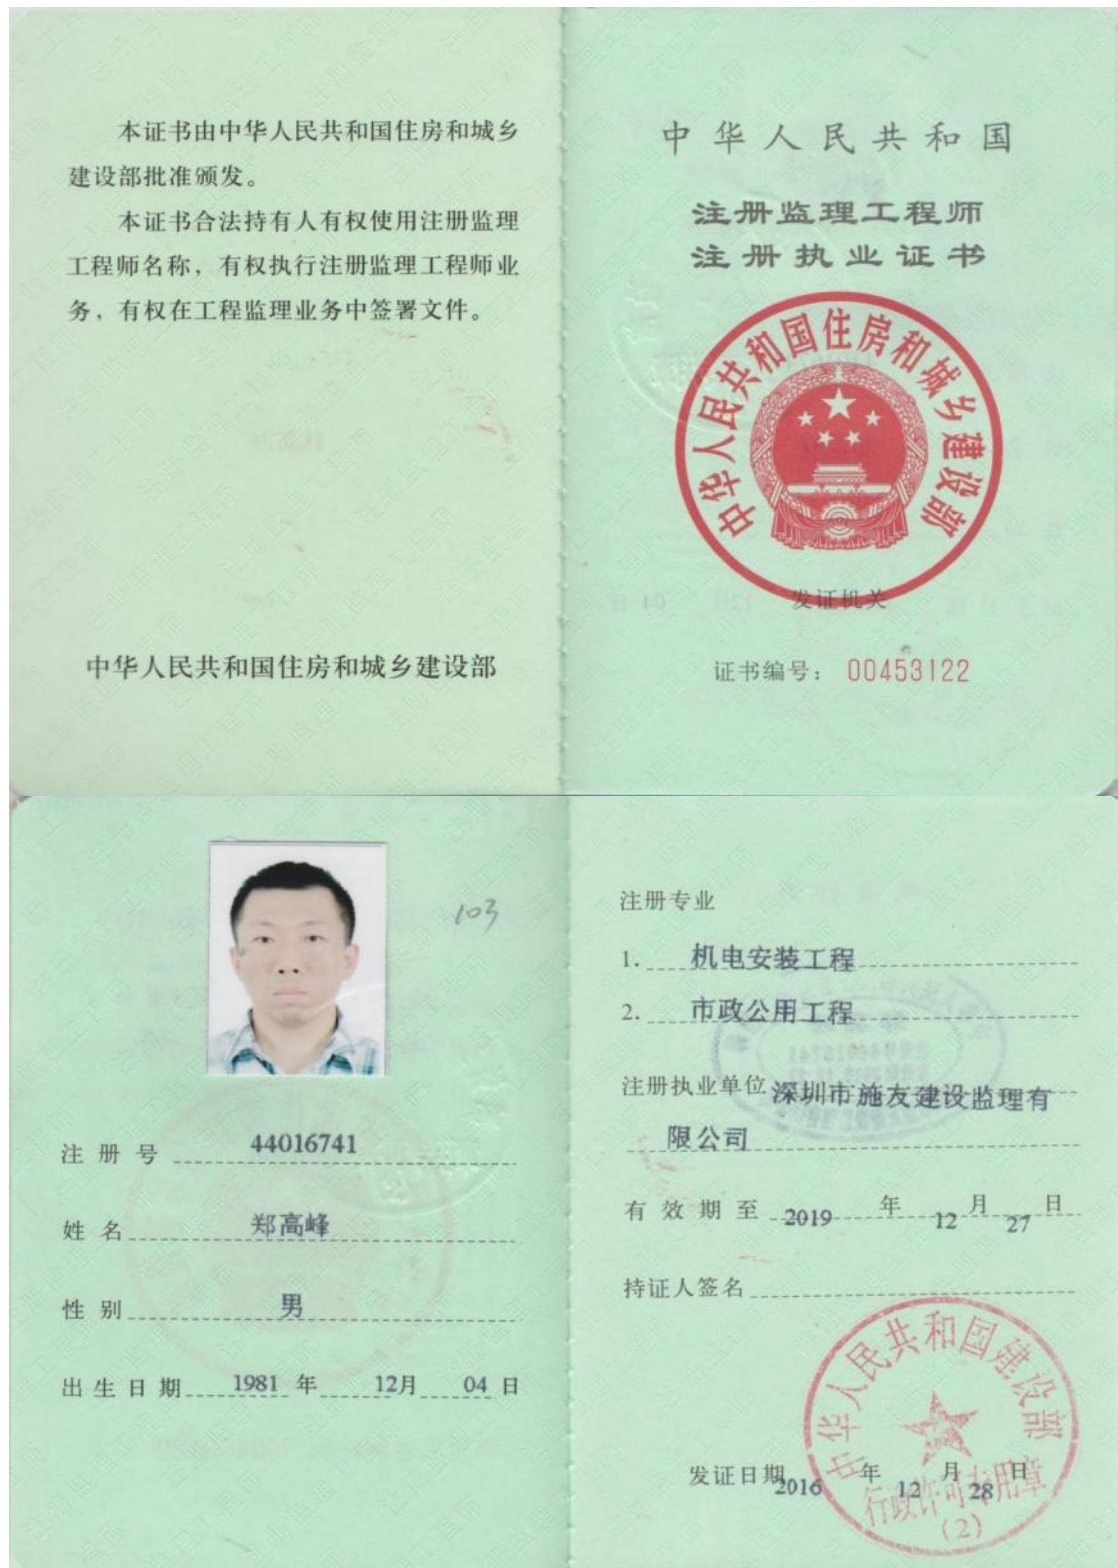 本证书由中华人民共和国住房和城乡
建设部批准颁发。
本证书合法持有人有权使用注册监理
工程师名称，有权执行注册监理工程师业
务，有权在工程监理业务中签署文件。
中华人民共和国住房和城乡建设部
中华人民共和国
注册监理工程师
注册执业证书
中华人民共和国住房和城乡建设部
发证机关
证书编号：00453122
103
注册号 44016741
姓名 郑高峰
性别 男
出生日期 1981 年 12月 04 日
注册专业
1. 机电安装工程
2. 市政公用工程
注册执业单位 深圳市施友建设监理有
限公司
有效期至 2019 年 12 月 27 日
持证人签名
中华人民共和国建设部
发证日期 2016 年 12 月 28 日
行政许可专用章
(2)